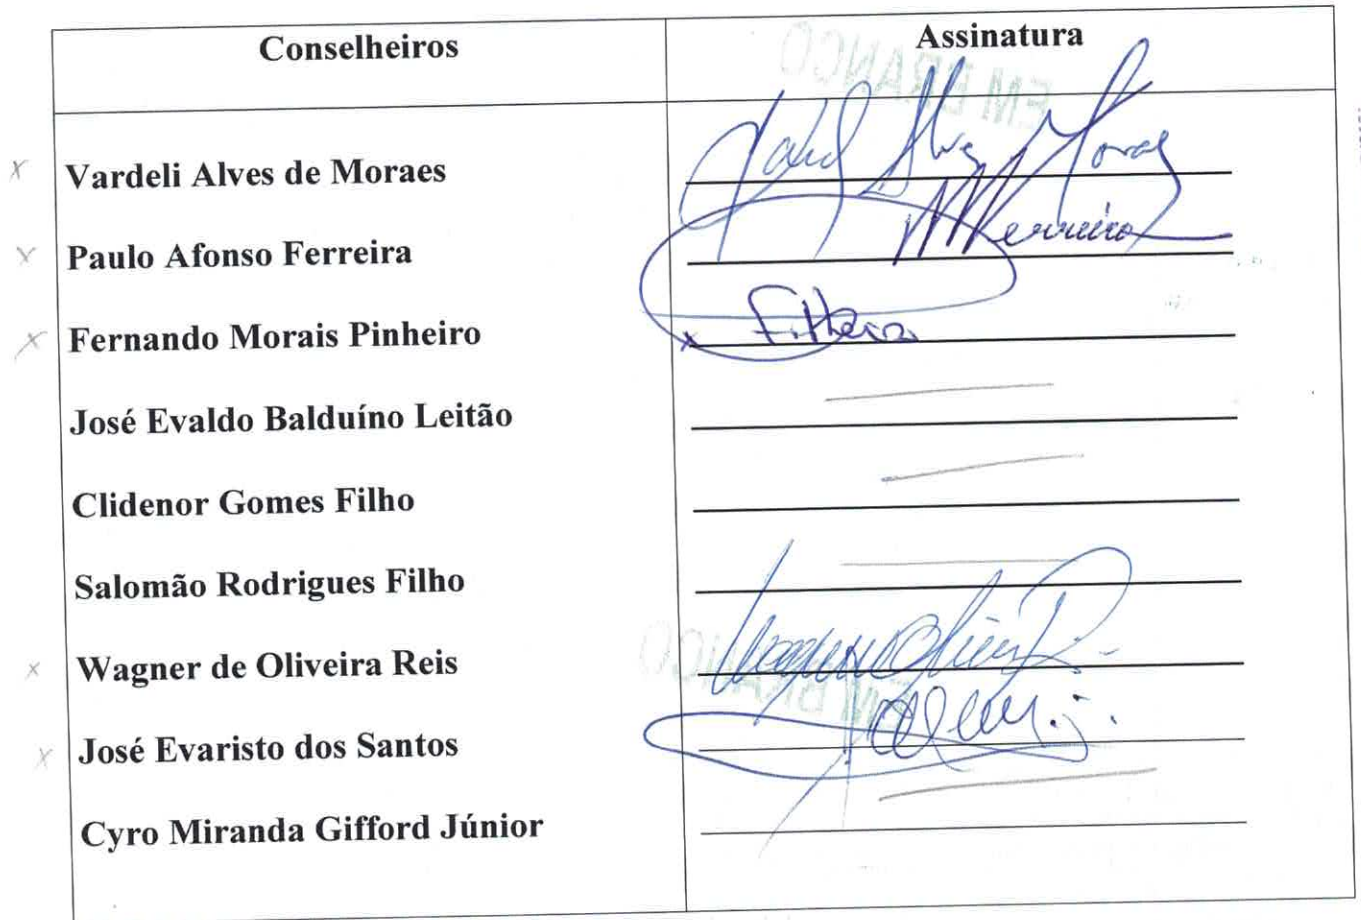 Conselheiros Assinatura
EM BRANCO
x Vardeli Alves de Moraes
x Paulo Afonso Ferreira
x Fernando Morais Pinheiro x
José Evaldo Balduíno Leitão
Clidenor Gomes Filho
Salomão Rodrigues Filho
x Wagner de Oliveira Reis
EM BRANCO
x José Evaristo dos Santos
Cyro Miranda Gifford Júnior